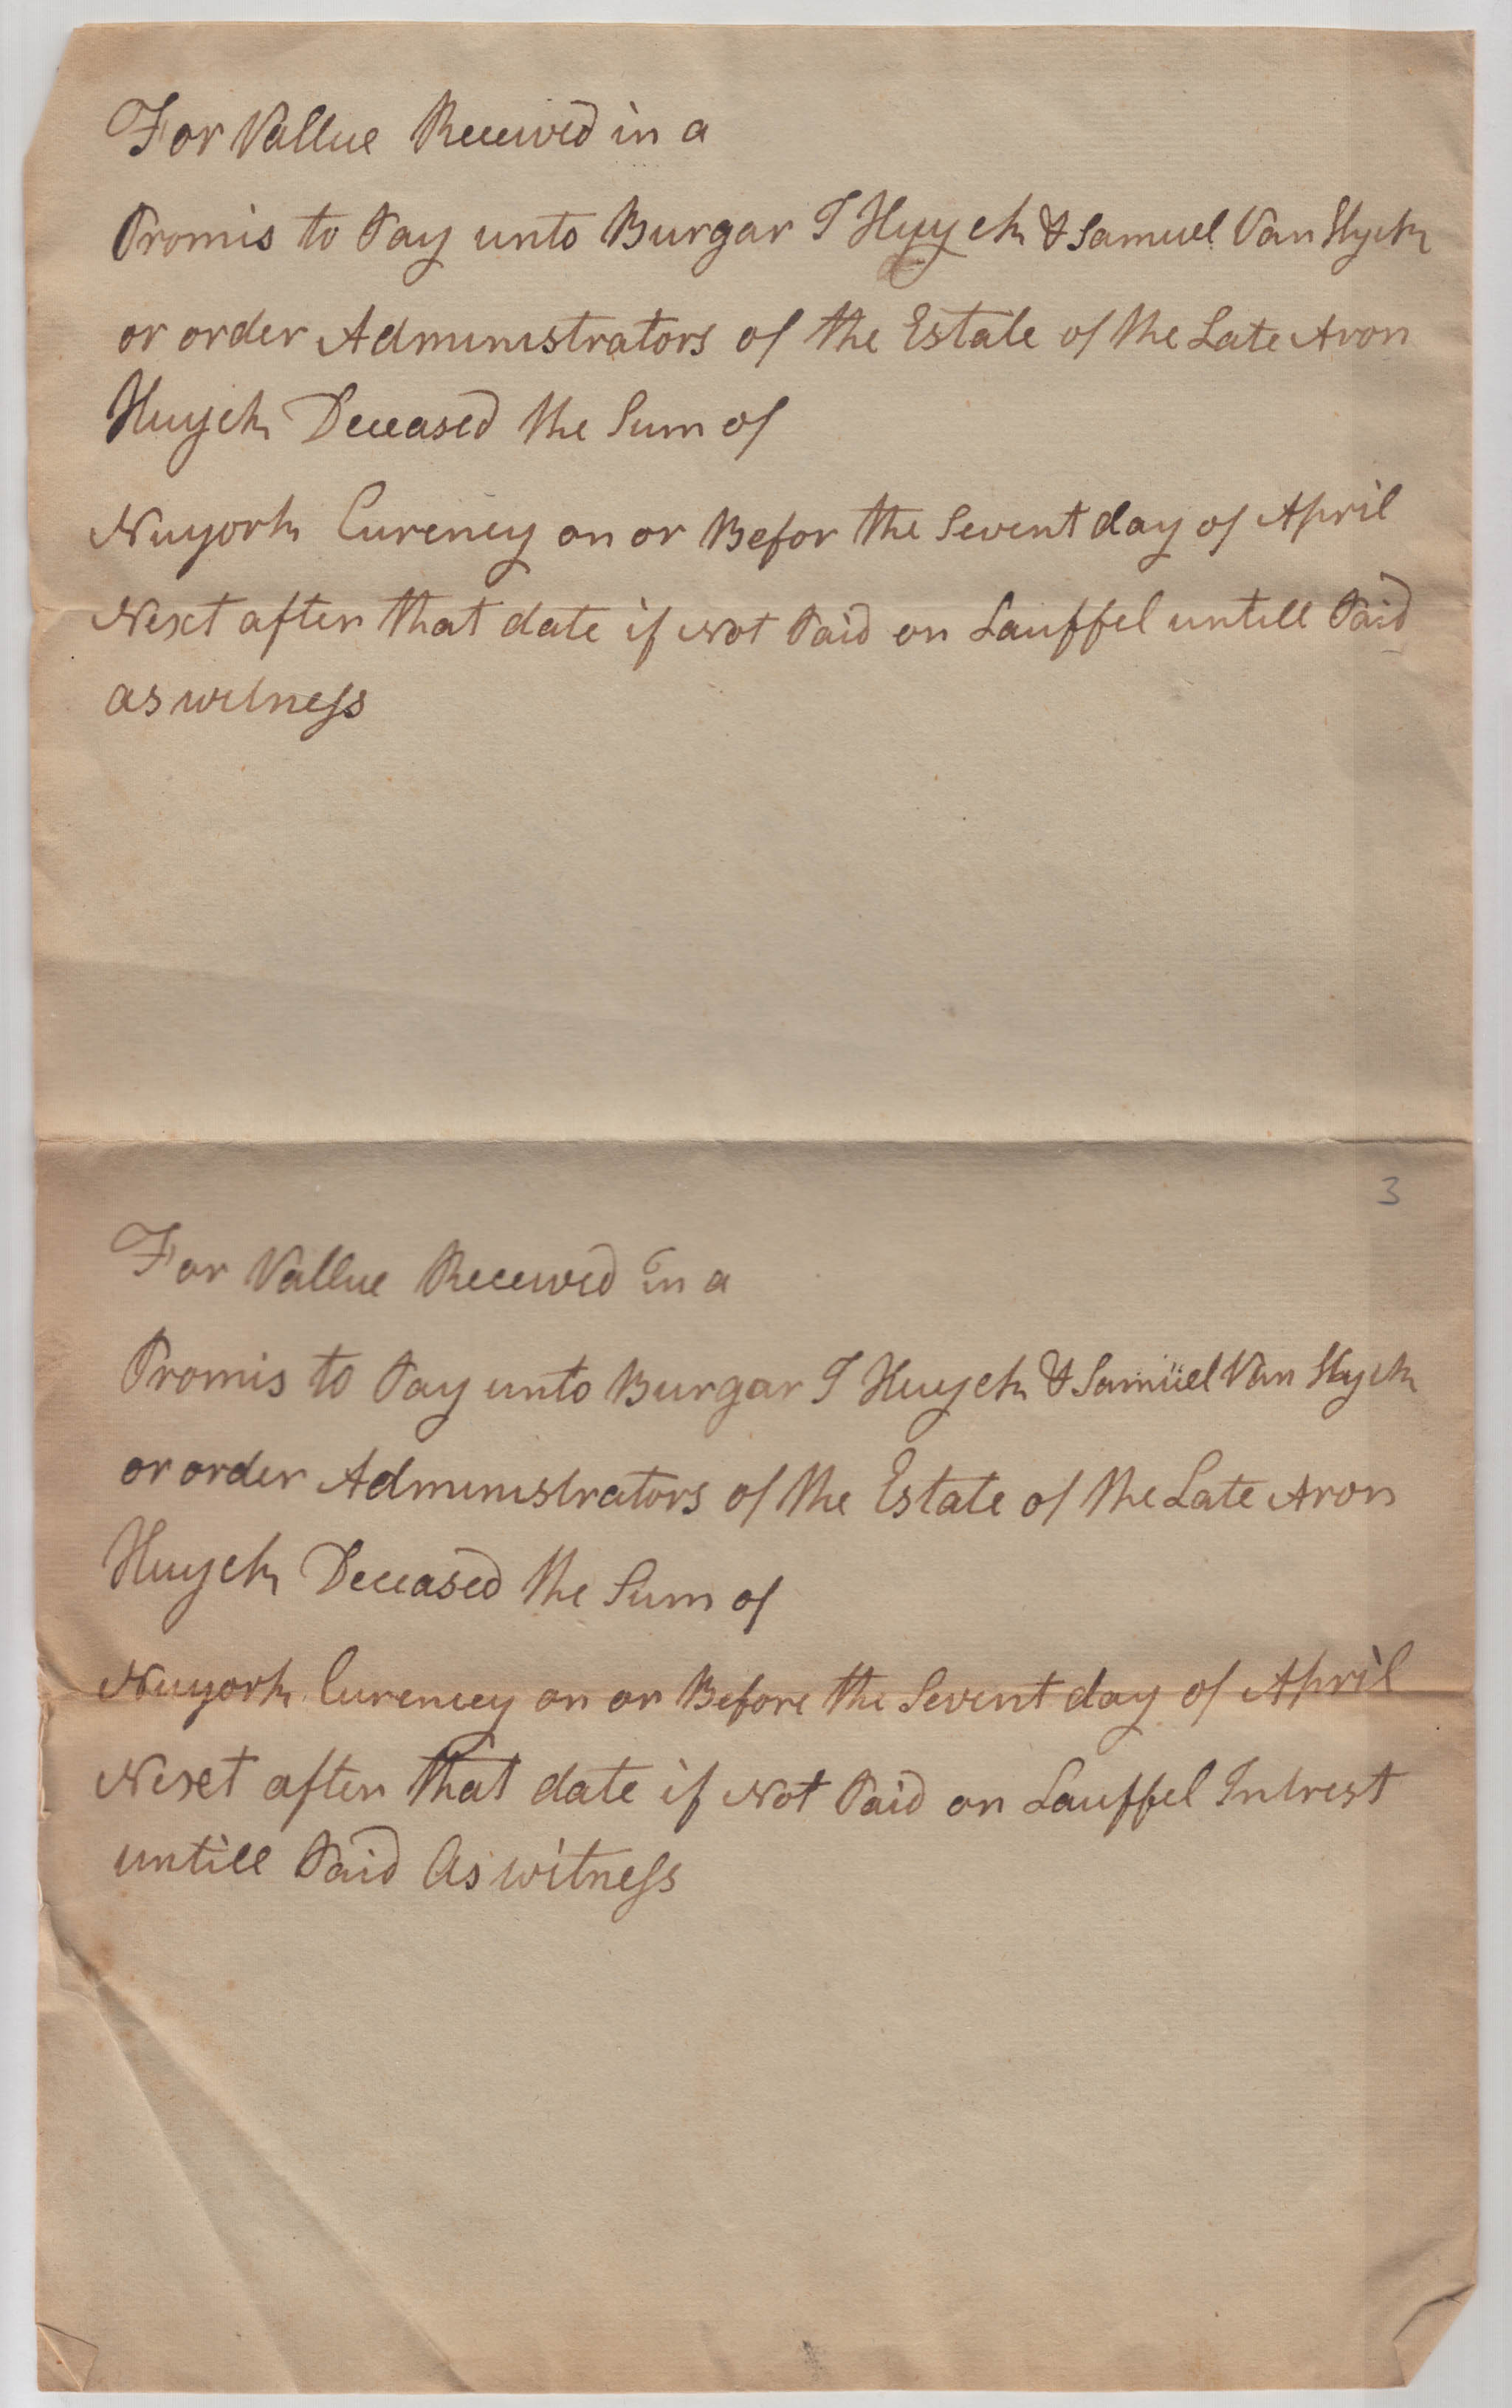 For Vallue Received in a
Promis to Pay unto Burgar T Huyck & Samuel Van Slyck
or order Administrators of the Estate of the Late Aron
Huyck Deceased the Sum of
Nuyork Cureney on or Befor the Sevent day of April
Next after that date if Not Paid on Lauffel untill Paid
as witness
3
For Vallue Received in a
Promis to Pay unto Burgar T Huyck & Samüel Van Slyck
or order Administrators of the Estate of the Late Aron
Huyck Deceased the Sum of
Nuyork Curencey on or Before the Sevent day of April
Next after that date if Not Paid on Lauffel Intrest
untill Paid As witness